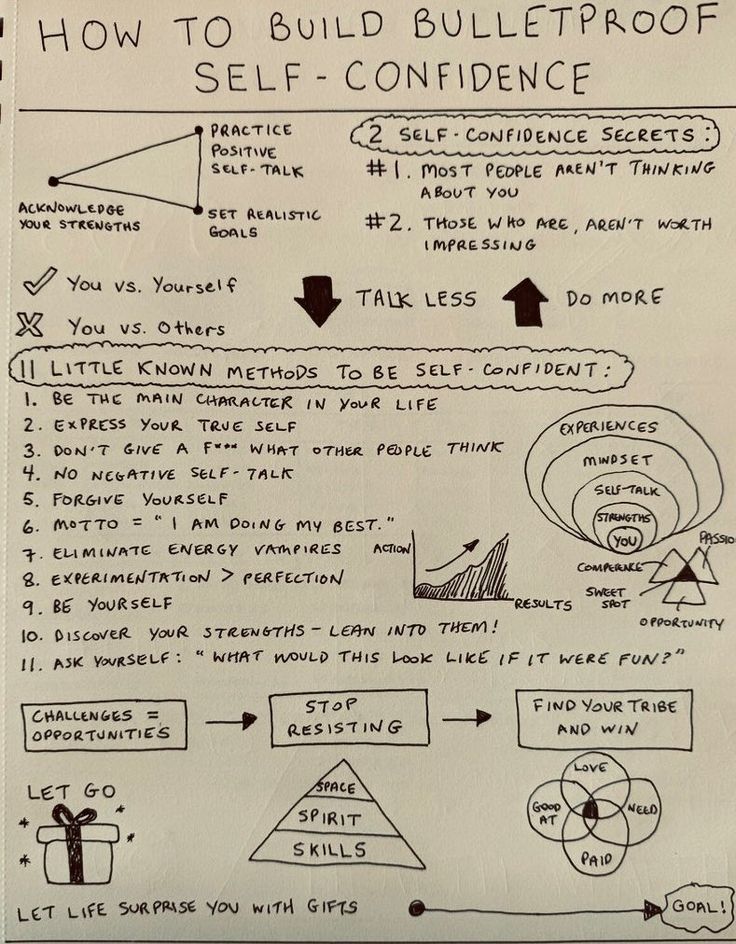 HOW TO BUILD BULLETPROOF
SELF-CONFIDENCE
PRACTICE
POSITIVE
SELF-TALK
ACKNOWLEDGE
YOUR STRENGTHS
SET REALISTIC
GOALS
2 SELF-CONFIDENCE SECRETS:
#1. MOST PEOPLE AREN'T THINKING
ABOUT YOU
#2. THOSE WHO ARE, AREN'T WORTH
IMPRESSING
You vs. Yourself
You vs. Others
TALK LESS
DO MORE
11 LITTLE KNOWN METHODS TO BE SELF-CONFIDENT:
1. BE THE MAIN CHARACTER IN YOUR LIFE
2. EXPRESS YOUR TRUE SELF
3. DON'T GIVE A F*** WHAT OTHER PEOPLE THINK
4. NO NEGATIVE SELF-TALK
5. FORGIVE YOURSELF
6. MOTTO = "I AM DOING MY BEST."
7. ELIMINATE ENERGY VAMPIRES
8. EXPERIMENTATION > PERFECTION
9. BE YOURSELF
10. DISCOVER YOUR STRENGTHS - LEAN INTO THEM!
11. ASK YOURSELF: "WHAT WOULD THIS LOOK LIKE IF IT WERE FUN?"
EXPERIENCES
MINDSET
SELF-TALK
STRENGTHS
YOU
ACTION
RESULTS
PASSIO
COMPETENCE
SWEET
SPOT
OPPORTUNITY
CHALLENGES =
OPPORTUNITIES
STOP
RESISTING
FIND YOUR TRIBE
AND WIN
LET GO
SPACE
SPIRIT
SKILLS
LOVE
GOOD
AT
NEED
PAID
LET LIFE SURPRISE YOU WITH GIFTS
GOAL!